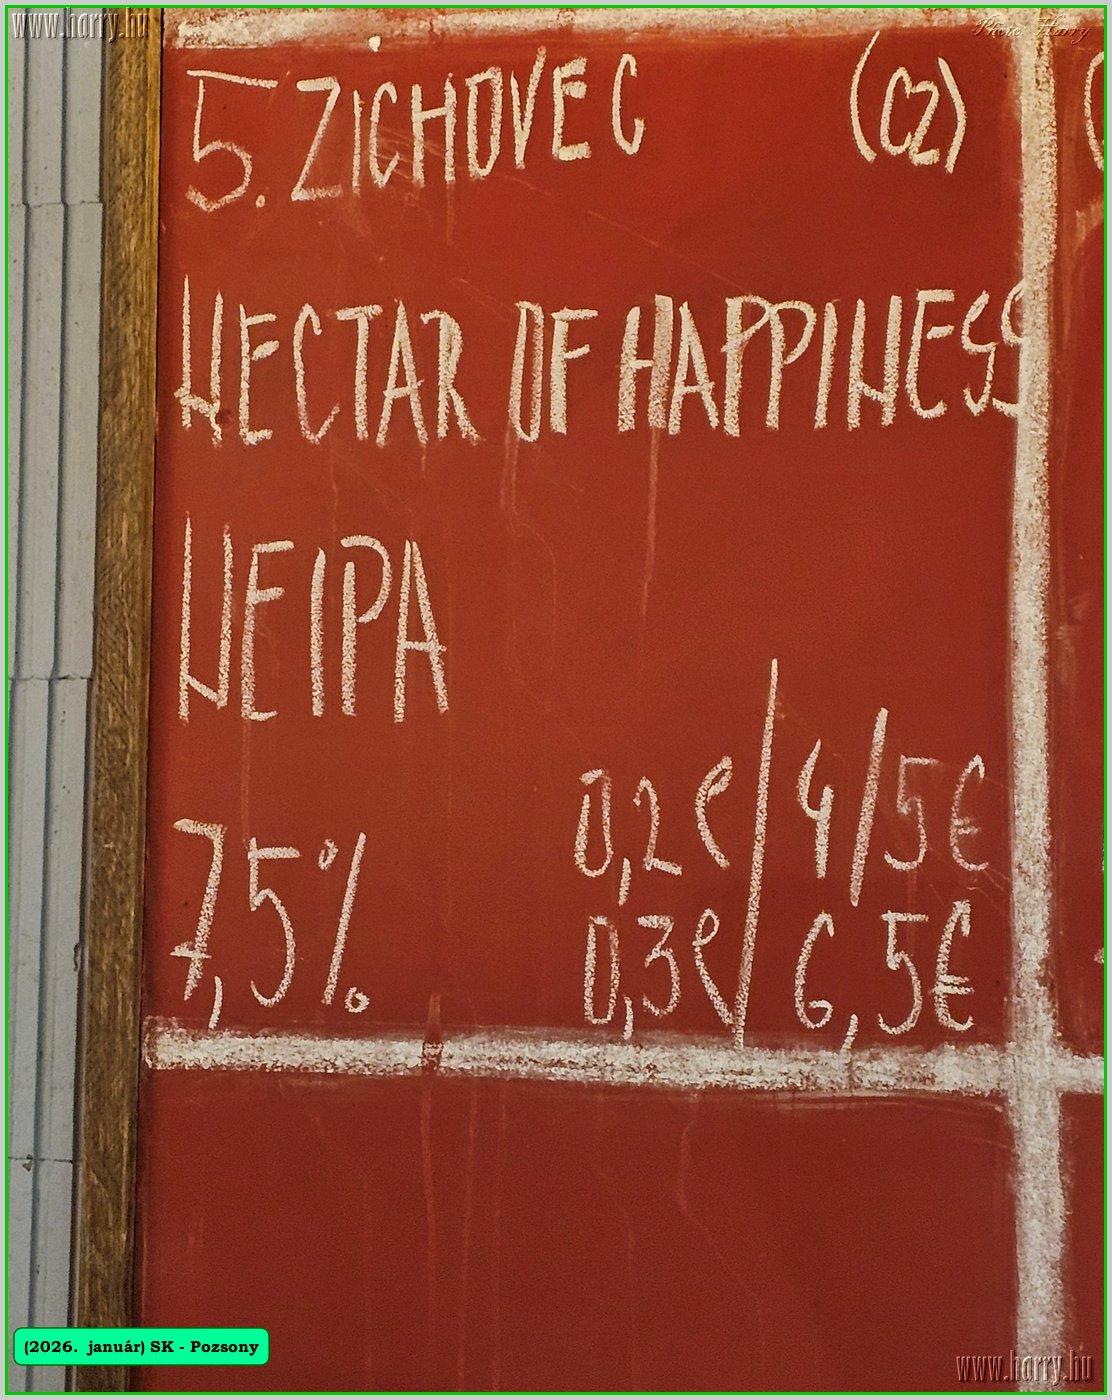 www.harry.hu
Photo: Harry
5. ZICHOVEC (CZ)
NECTAR OF HAPPINESS
NEIPA
7,5%
0,2l / 4/5€
0,3l / 6,5€
(2026. január) SK - Pozsony
www.harry.hu